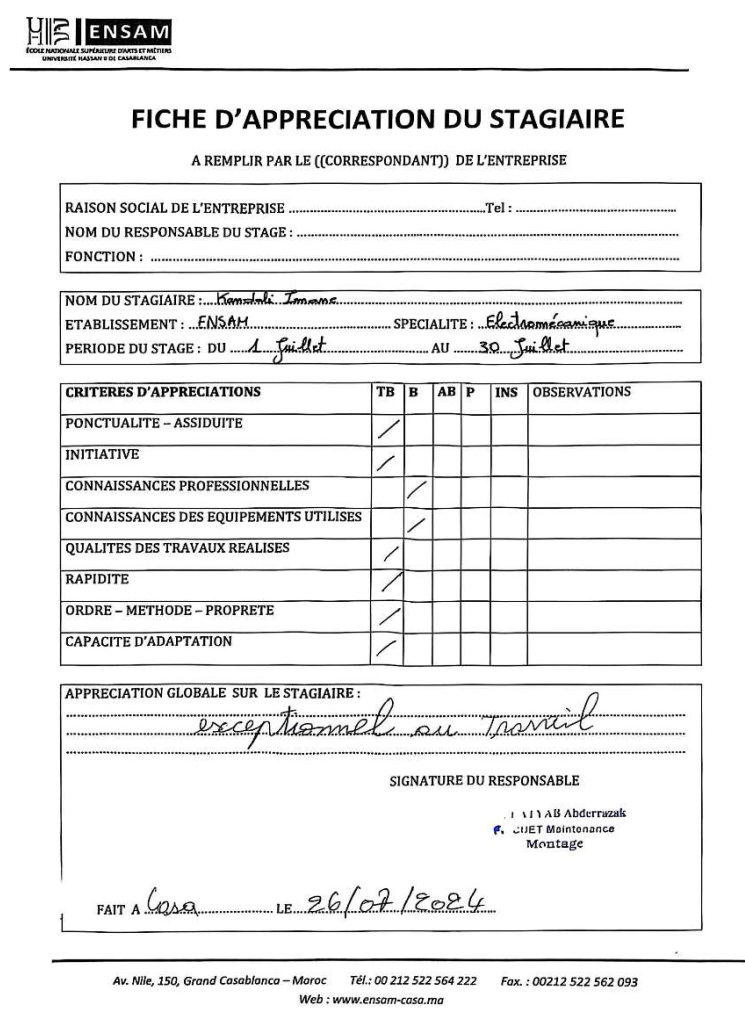 ENSAM
ÉCOLE NATIONALE SUPÉRIEURE D'ARTS ET MÉTIERS
UNIVERSITÉ HASSAN II DE CASABLANCA
FICHE D'APPRECIATION DU STAGIAIRE
A REMPLIR PAR LE ((CORRESPONDANT)) DE L'ENTREPRISE
RAISON SOCIAL DE L'ENTREPRISE ........ Tel : ........
NOM DU RESPONSABLE DU STAGE : ........
FONCTION : ........
NOM DU STAGIAIRE : Kandali Imane
ETABLISSEMENT : ENSAM SPECIALITE : Electromécanique
PERIODE DU STAGE : DU 1 Juillet AU 30 Juillet
CRITERES D'APPRECIATIONS TB B AB P INS OBSERVATIONS
PONCTUALITE – ASSIDUITE /
INITIATIVE /
CONNAISSANCES PROFESSIONNELLES /
CONNAISSANCES DES EQUIPEMENTS UTILISES /
QUALITES DES TRAVAUX REALISES /
RAPIDITE /
ORDRE – METHODE – PROPRETE /
CAPACITE D'ADAPTATION /
APPRECIATION GLOBALE SUR LE STAGIAIRE :
exceptionnel au Travail
SIGNATURE DU RESPONSABLE
Abderrazak
Maintenance
Montage
FAIT A Casa LE 26/07/2024
Av. Nile, 150, Grand Casablanca – Maroc Tél.: 00 212 522 564 222 Fax. : 00212 522 562 093
Web : www.ensam-casa.ma